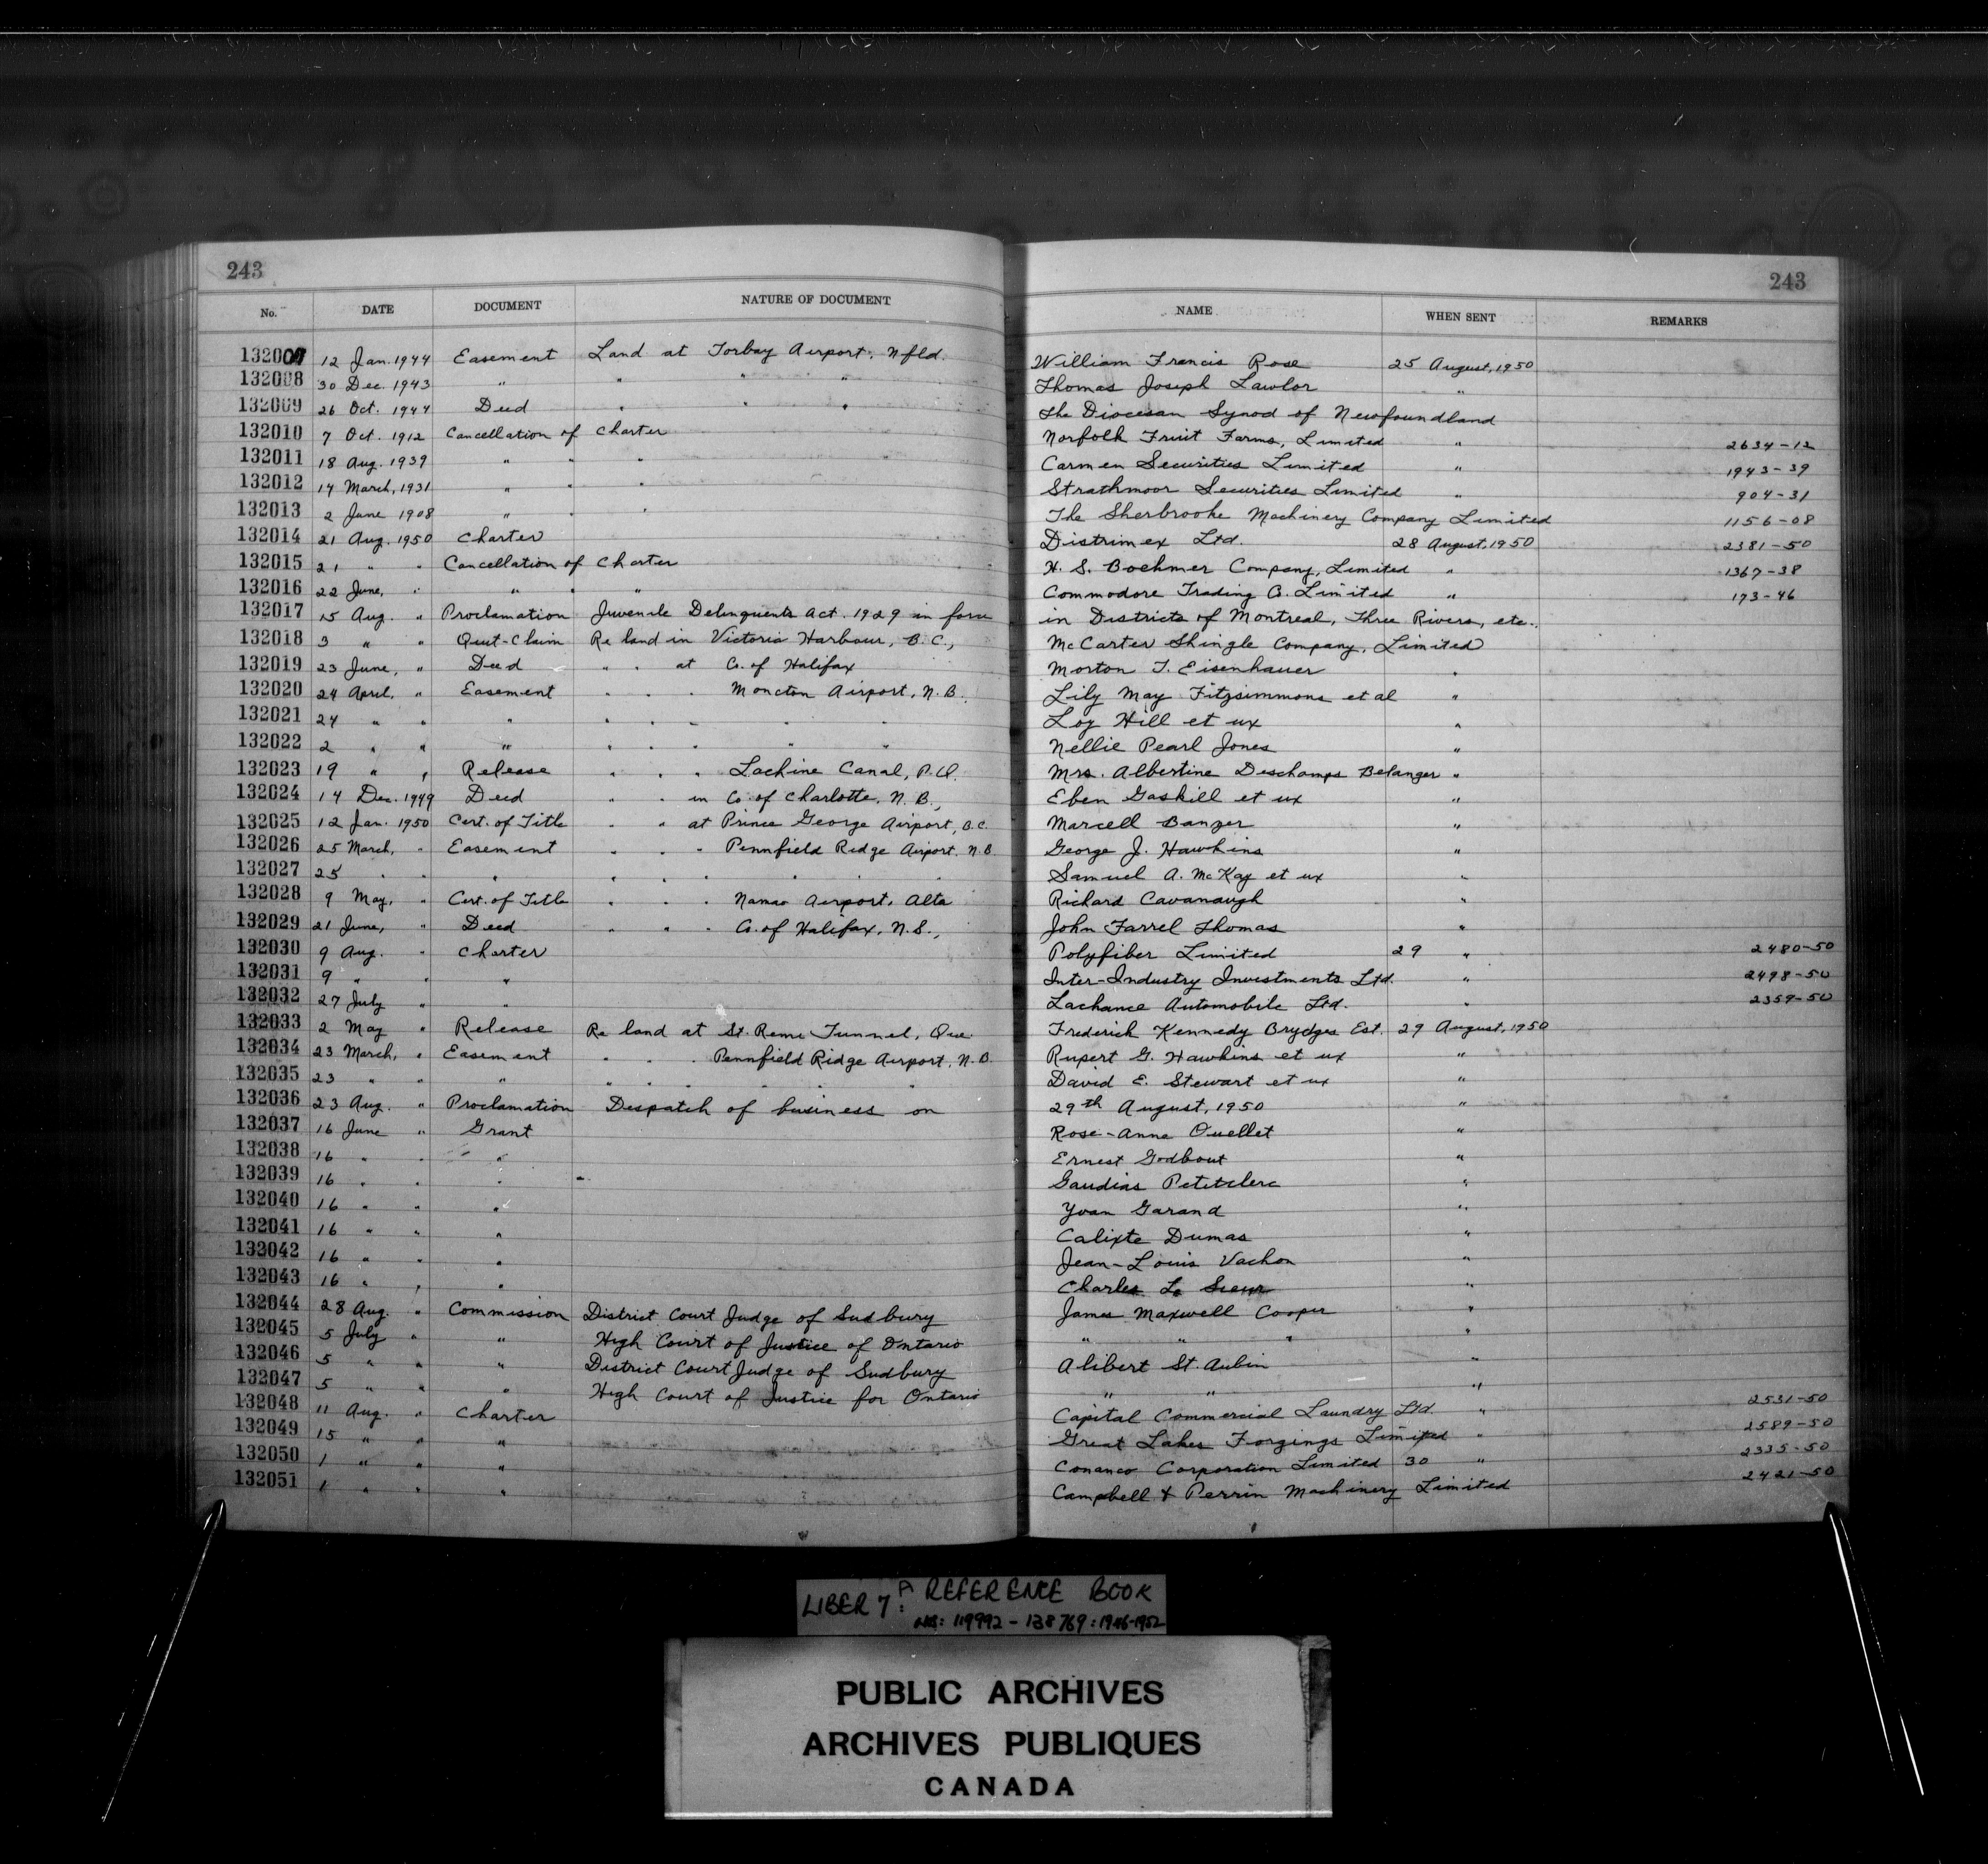 243 243
No. DATE DOCUMENT NATURE OF DOCUMENT NAME WHEN SENT REMARKS
132007 12 Jan. 1944 Easement Land at Torbay Airport, Nfld. William Francis Rose 25 August, 1950
132008 30 Dec. 1943 " " " " Thomas Joseph Lawlor "
132009 26 Oct. 1944 Deed " " " The Diocesan Synod of Newfoundland
132010 7 Oct. 1912 Cancellation of Charter Norfolk Fruit Farms, Limited " 2634-12
132011 18 Aug. 1939 " " " Carmen Securities Limited " 1943-39
132012 14 March, 1931 " " " Strathmoor Securities Limited " 904-31
132013 2 June 1908 " " " The Sherbrooke Machinery Company Limited 1156-08
132014 21 Aug. 1950 Charter Distrimex Ltd. 28 August, 1950 2381-50
132015 21 " " Cancellation of Charter H. S. Boehmer Company, Limited " 1367-38
132016 22 June, " " " " Commodore Trading Co. Limited " 193-46
132017 15 Aug. " Proclamation Juvenile Delinquents Act. 1929 in force in Districts of Montreal, Three Rivers, etc.
132018 3 " " Quit-Claim Re land in Victoria Harbour, B.C., McCarter Shingle Company, Limited
132019 23 June, " Deed " " at Co. of Halifax Morton T. Eisenhauer "
132020 24 April, " Easement " " " Moncton Airport, N.B. Lily May Fitzsimmons et al "
132021 24 " " " " " " " " Loy Hill et ux "
132022 2 " " " " " " " " Nellie Pearl Jones "
132023 19 " " Release " " " Lachine Canal, P.Q. Mrs. Albertine Deschamps Belanger "
132024 14 Dec. 1949 Deed " " in Co. of Charlotte, N.B., Eben Gaskill et ux "
132025 12 Jan. 1950 Cert. of Title " " at Prince George Airport, B.C. Marcell Banzer "
132026 25 March, " Easement " " " Pennfield Ridge Airport, N.B. George J. Hawkins "
132027 25 " " " " " " " " " Samuel A. McKay et ux "
132028 9 May, " Cert. of Title " " " Namao Airport, Alta Richard Cavanaugh "
132029 21 June, " Deed " " " Co. of Halifax, N.S., John Farrel Thomas "
132030 9 Aug. " Charter Polyfiber Limited 29 " 2480-50
132031 9 " " " Inter-Industry Investments Ltd. " 2498-50
132032 27 July " " Lachance Automobile Ltd. " 2359-50
132033 2 May " Release Re land at St. Remi Tunnel, Que. Frederick Kennedy Brydges Est. 29 August, 1950
132034 23 March, " Easement " " " Pennfield Ridge Airport, N.B. Rupert G. Hawkins et ux "
132035 23 " " " " " " " " " David E. Stewart et ux "
132036 23 Aug. " Proclamation Despatch of business on 29th August, 1950 "
132037 16 June " Grant Rose-Anne Ouellet "
132038 16 " " " Ernest Godbout "
132039 16 " " " Gaudias Petitclerc "
132040 16 " " " Yvan Garand "
132041 16 " " " Calixte Dumas "
132042 16 " " " Jean-Louis Vachon "
132043 16 " " " Charles Le Sieur "
132044 28 Aug. " Commission District Court Judge of Sudbury James Maxwell Cooper "
132045 5 July " " High Court of Justice of Ontario " " " "
132046 5 " " " District Court Judge of Sudbury Alibert St. Aubin "
132047 5 " " " High Court of Justice for Ontario " " "
132048 11 Aug. " Charter Capital Commercial Laundry Ltd. " 2531-50
132049 15 " " " Great Lakes Forgings Limited " 2589-50
132050 1 " " " Conanco Corporation Limited 30 " 2335-50
132051 1 " " " Campbell & Perrin Machinery Limited 2421-50
LIBER 7A: REFERENCE BOOK
NOS: 119992 - 138769: 1946-1952
PUBLIC ARCHIVES
ARCHIVES PUBLIQUES
CANADA